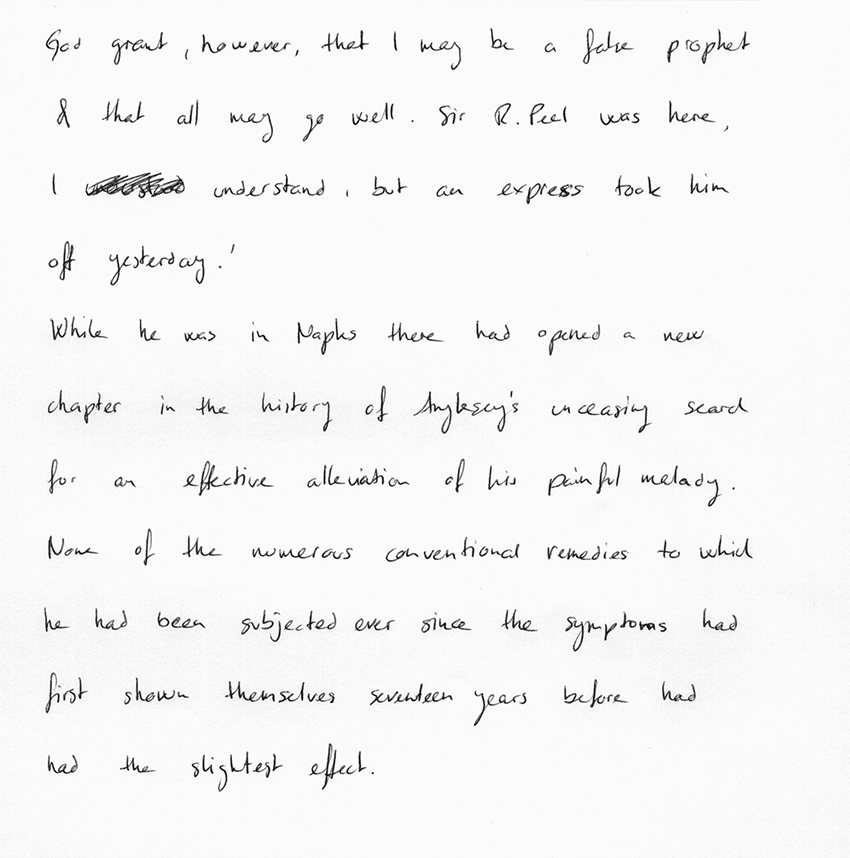 God grant, however, that I may be a false prophet
& that all may go well. Sir R. Peel was here,
I understand, but an express took him
off yesterday.'
While he was in Naples there had opened a new
chapter in the history of Anglesey's unceasing search
for an effective alleviation of his painful melady.
None of the numerous conventional remedies to which
he had been subjected ever since the symptoms had
first shown themselves seventeen years before had
had the slightest effect.